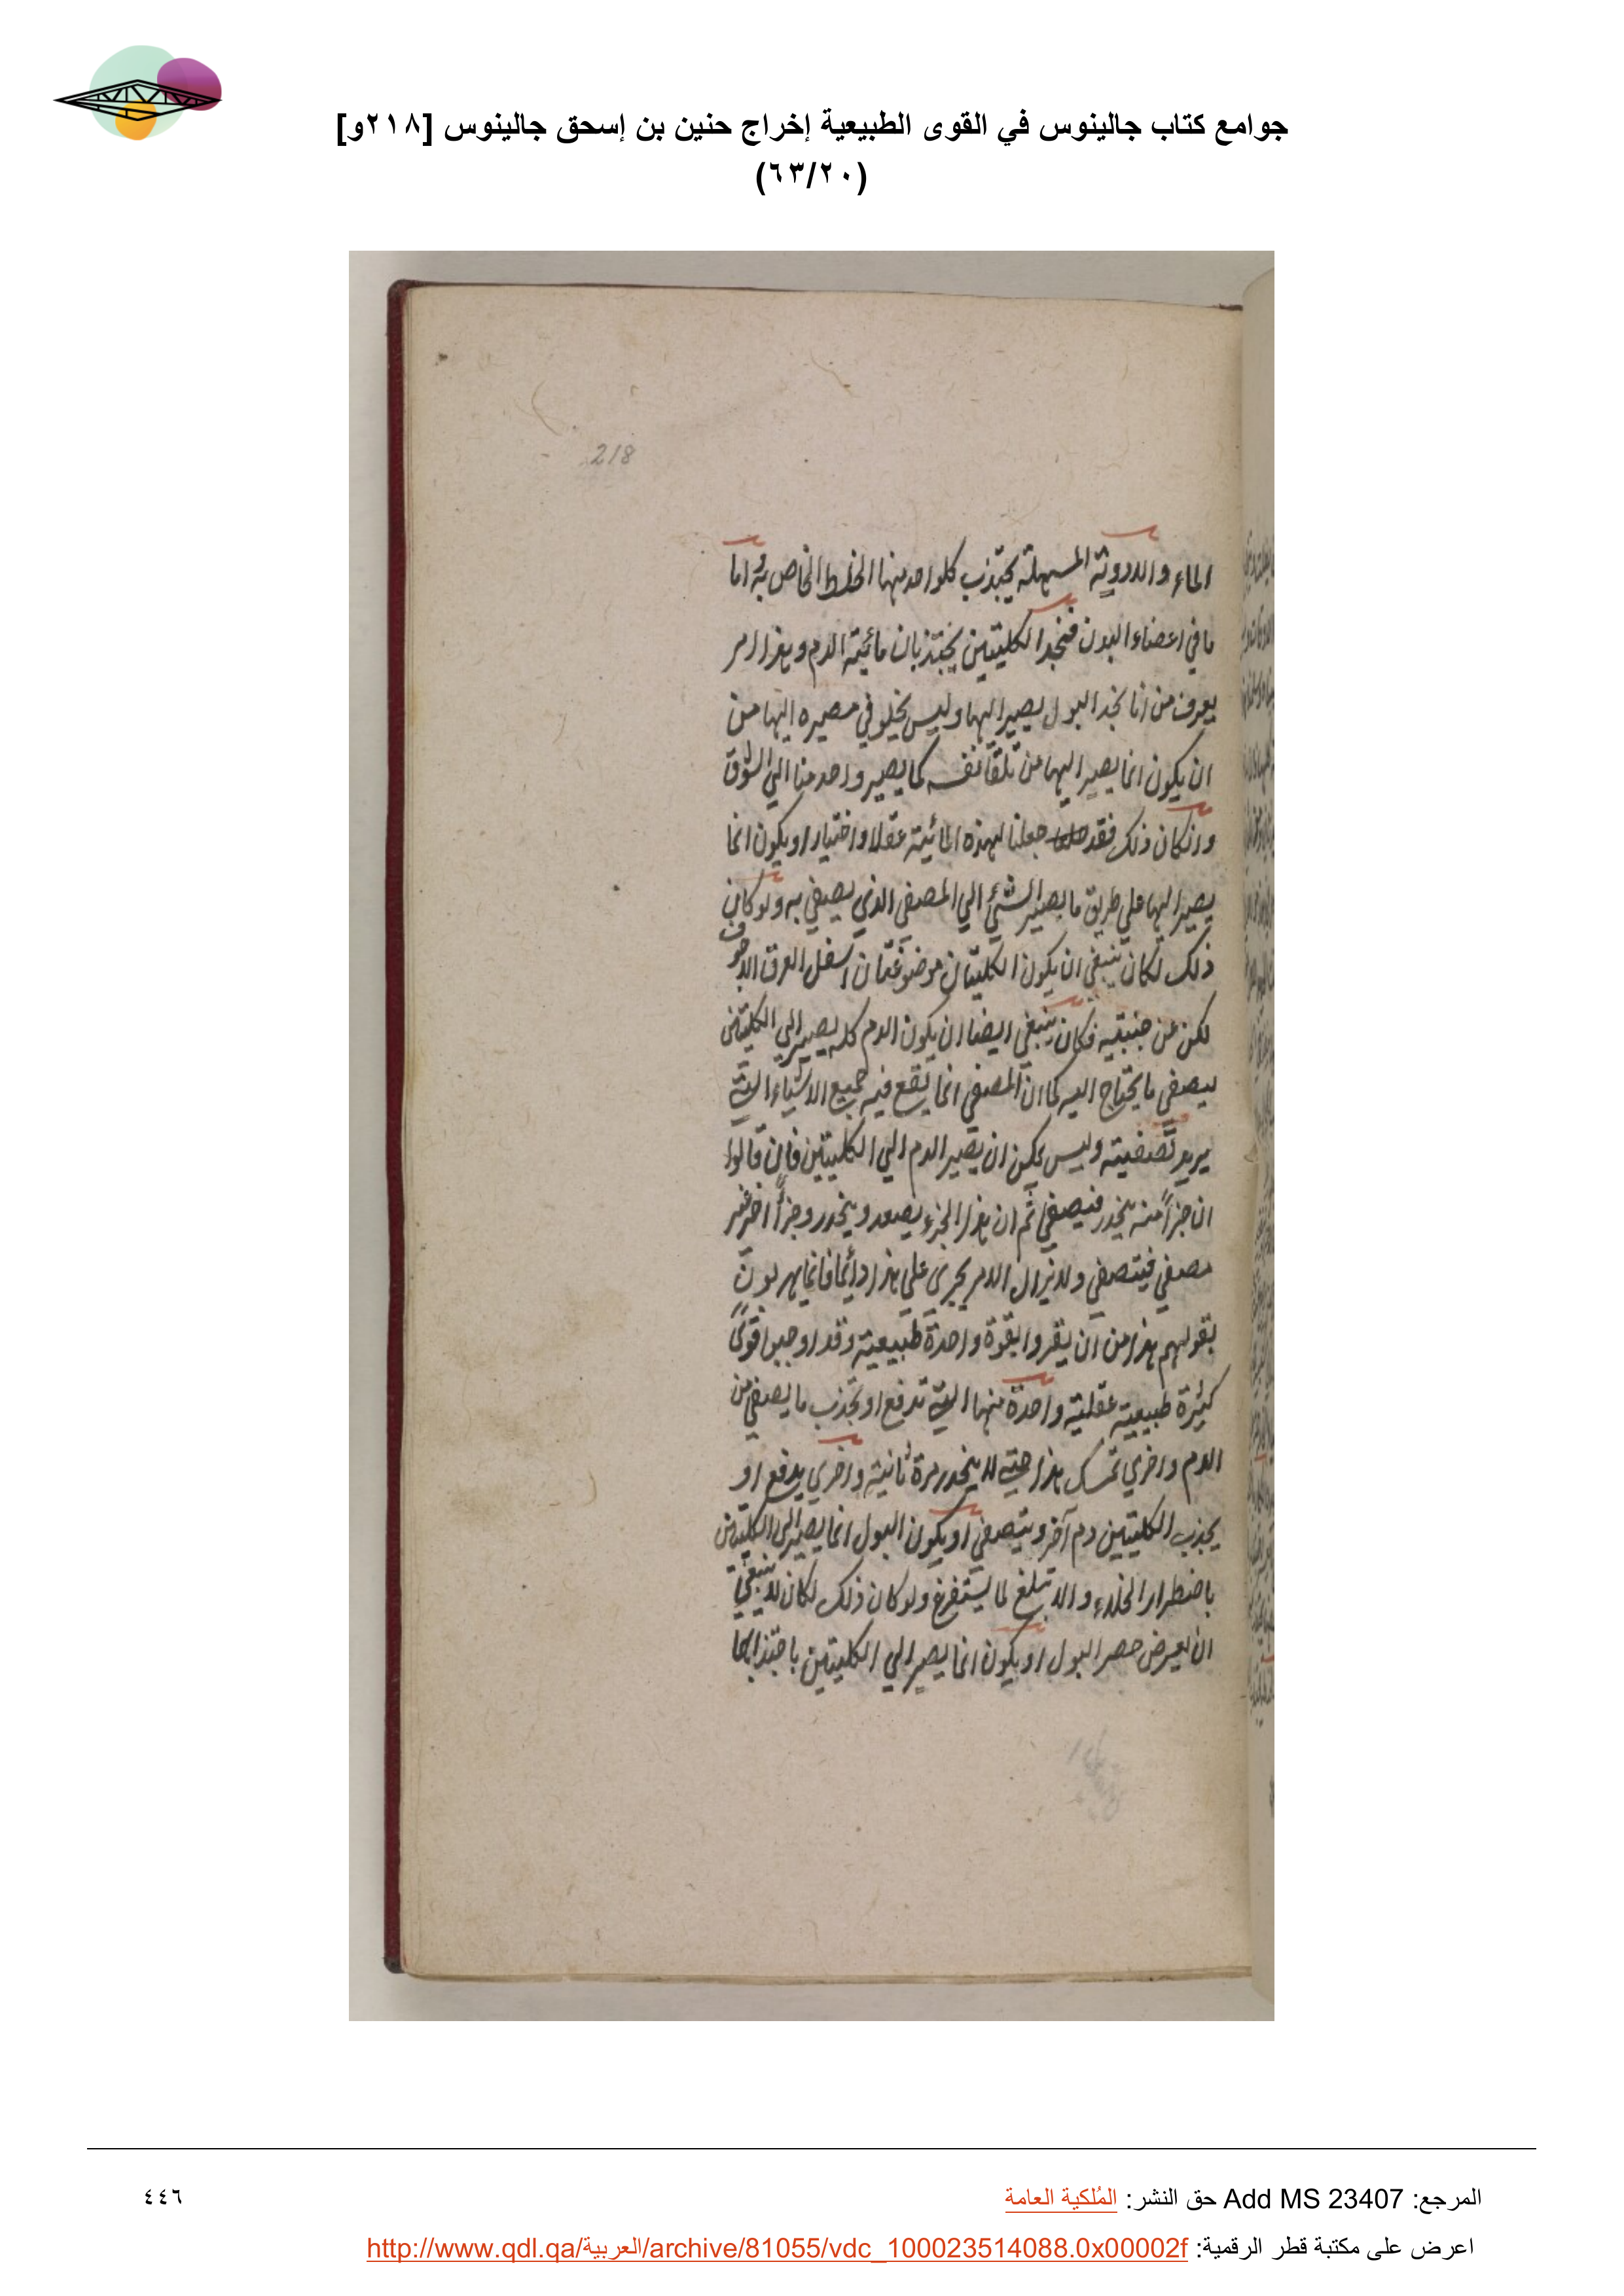 جوامع كتاب جالينوس في القوى الطبيعية إخراج حنين بن إسحق جالينوس [٢١٨و]
(٦٣/٢٠)
218
الماء والادوية المسهلة يجتذب كلواحد منها الخلط الخاص به واما
ما في اعضاء البدن فنجد الكليتين يجتذبان مائية الدم وهذا امر
يعرف من انا نجد البول يصير اليها وليس يخلو في مصيره اليها من
ان يكون انما يصير اليها من تلقا نفسه كما يصير واحد منا الي السوق
وان كان ذلك فقد جعلنا لهذه المائية عقلا واختيار او يكون انما
يصير اليها علي طريق ما يصير الشئ الي المصفي الذي يصفي به ولو كان
ذلك لكان ينبغي ان يكون الكليتان موضوعتان اسفل العرق الاجوف
لكن عن جنبتيه فكان ينبغي ايضا ان يكون الدم كله يصير الي الكليتين
ليصفي ما يحتاج اليه كما ان المصفي انما يقع فيه جميع الاشياء التي
يريد تصفيته وليس يمكن ان يصير الدم الي الكليتين فان قالوا
ان جزأ منه ينحدر فيصفي ثم ان هذا الجزء يصعد وينحدر وجزأ اخر غير
مصفي فيتصفي ولا يزال الامر يجري علي هذا دائما فانما يهربون
بقولهم هذا من ان يقروا بقوة واحدة طبيعية وقد اوجبوا قوىً
كثيرة طبيعية عقلية واحدة منها التي تدفع او تجذب ما يصفي من
الدم واخري تمسك هذا حتي لا ينحدر مرة ثانية واخري يدفع او
يجذب الكليتين دم آخر ويتصفي او يكون البول انما يصير الى الكليتين
باضطرار الخلاء والاتبلغ لما يستفرغ ولو كان ذلك لكان لا ينبغي
ان يعرض حصر البول او يكون انما يصير الي الكليتين باجتذابها
المرجع: Add MS 23407 حق النشر: المُلكية العامة
٤٤٦
اعرض على مكتبة قطر الرقمية: http://www.qdl.qa/العربية/archive/81055/vdc_100023514088.0x00002f